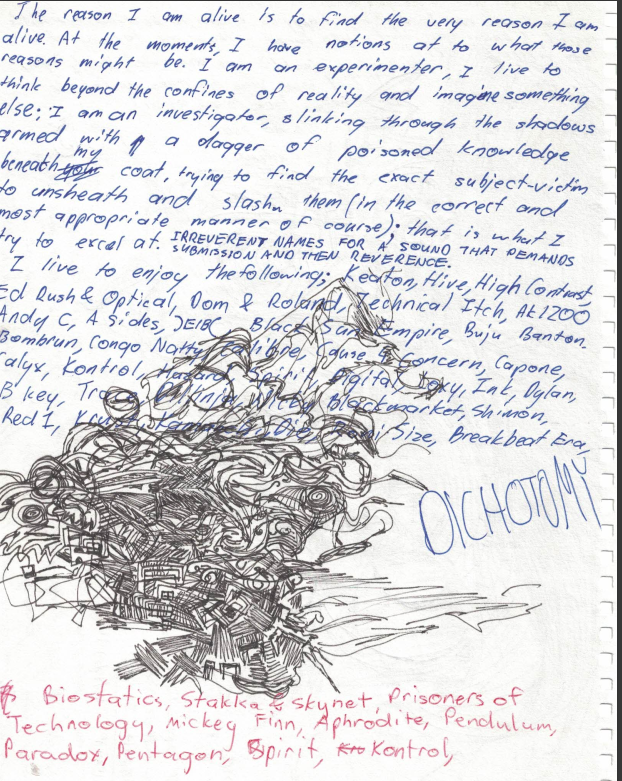 The reason I am alive is to find the very reason I am
alive. At the moments, I have notions at to what those
reasons might be. I am an experimenter, I live to
think beyond the confines of reality and imagine something
else; I am an investigator, slinking through the shadows
armed with a dagger of poisoned knowledge
beneath my coat, trying to find the exact subject-victim
to unsheath and slash them (in the correct and
most appropriate manner of course); that is what I
try to excel at. IRREVERENT NAMES FOR A SOUND THAT DEMANDS
SUBMISSION AND THEN REVERENCE.
I live to enjoy the following; Keaton, Hive, High Contrast,
Ed Rush & Optical, Dom & Roland, Technical Itch, AK1200
Andy C, A Sides, Black Sun Empire, Buju Banton.
Bombrun, Congo Natty, Calibre, Cause 4 Concern, Capone,
Calyx, Kontrol, Hazard, Spirit, Digital, Ink, Dylan,
B key, Blackmarket, Shimon,
Red 1, Krust, Die, Roni Size, Breakbeat Era,
DICHOTOMY
Biostatics, Stakka & Skynet, Prisoners of
Technology, Mickey Finn, Aphrodite, Pendulum,
Paradox, Pentagon, Spirit, Kontrol,